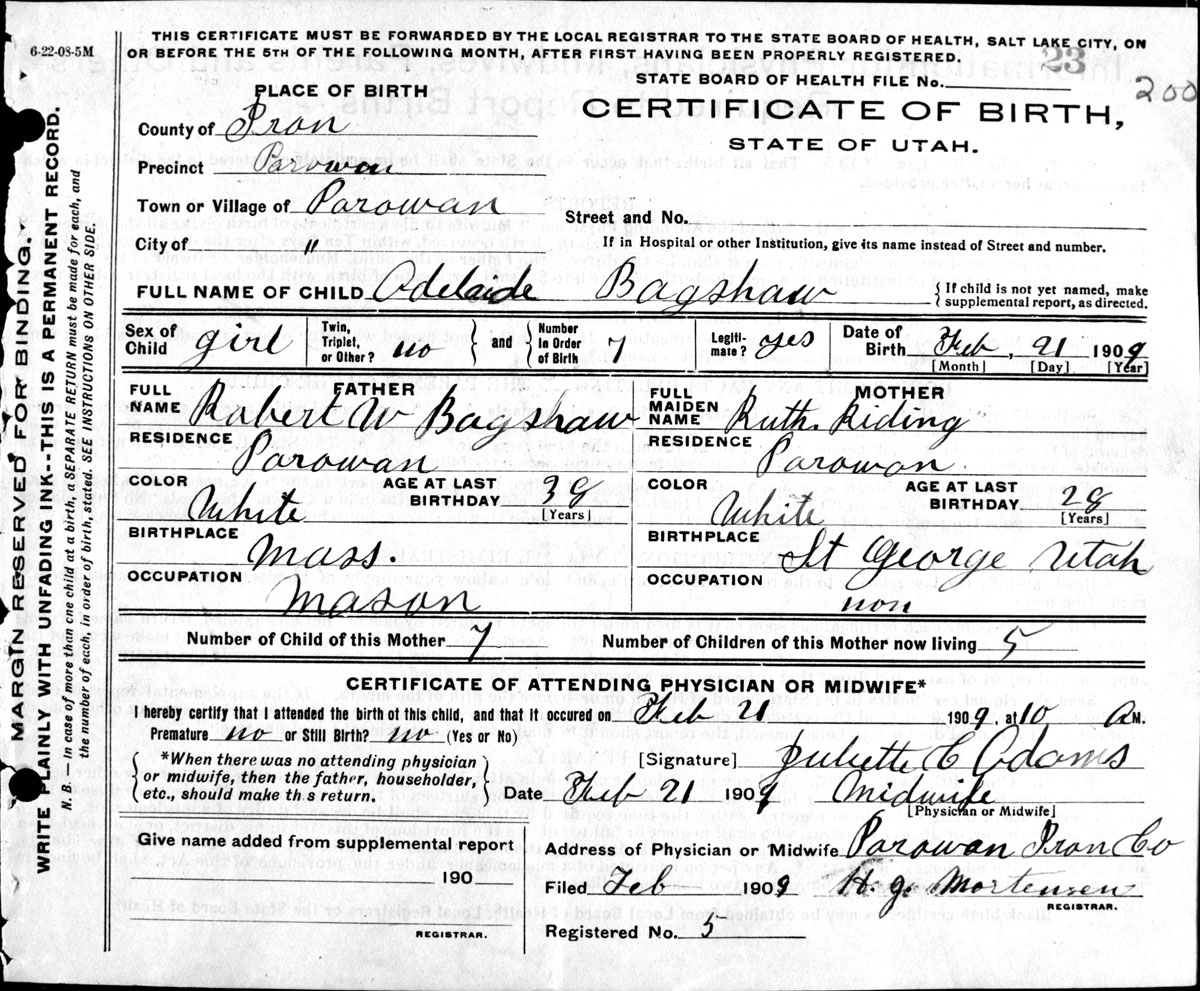 6-22-08-5M
THIS CERTIFICATE MUST BE FORWARDED BY THE LOCAL REGISTRAR TO THE STATE BOARD OF HEALTH, SALT LAKE CITY, ON
OR BEFORE THE 5TH OF THE FOLLOWING MONTH, AFTER FIRST HAVING BEEN PROPERLY REGISTERED.
23
STATE BOARD OF HEALTH FILE No.
200
PLACE OF BIRTH
CERTIFICATE OF BIRTH,
STATE OF UTAH.
County of Iron
Precinct Parowan
Town or Village of Parowan
Street and No.
City of "
If in Hospital or other Institution, give its name instead of Street and number.
FULL NAME OF CHILD Adelaide Bagshaw
{ If child is not yet named, make supplemental report, as directed.
Sex of Child girl
Twin, Triplet, or Other? no } and { Number in Order of Birth 7
Legitimate? yes
Date of Birth Feb, 21 1909
[Month] [Day] [Year]
FATHER
FULL NAME Robert W Bagshaw
RESIDENCE Parowan
COLOR White
AGE AT LAST BIRTHDAY 38
[Years]
BIRTHPLACE Mass.
OCCUPATION Mason
MOTHER
FULL MAIDEN NAME Ruth. Riding
RESIDENCE Parowan
COLOR White
AGE AT LAST BIRTHDAY 28
[Years]
BIRTHPLACE St George Utah
OCCUPATION non
Number of Child of this Mother 7
Number of Children of this Mother now living 5
CERTIFICATE OF ATTENDING PHYSICIAN OR MIDWIFE*
I hereby certify that I attended the birth of this child, and that it occured on Feb 21 1909, at 10 A M.
Premature no or Still Birth? no (Yes or No)
{ *When there was no attending physician
or midwife, then the father, householder,
etc., should make this return. }
[Signature] Juliette C Adams
Date Feb 21 1909 Midwife
[Physician or Midwife]
Give name added from supplemental report
190
REGISTRAR.
Address of Physician or Midwife Parowan Iron Co
Filed Feb 1909 H. g. Mortensen
REGISTRAR.
Registered No. 5
MARGIN RESERVED FOR BINDING.
WRITE PLAINLY WITH UNFADING INK--THIS IS A PERMANENT RECORD.
N. B. In case of more than one child at a birth, a SEPARATE RETURN must be made for each, and
the number of each, in order of birth, stated. SEE INSTRUCTIONS ON OTHER SIDE.